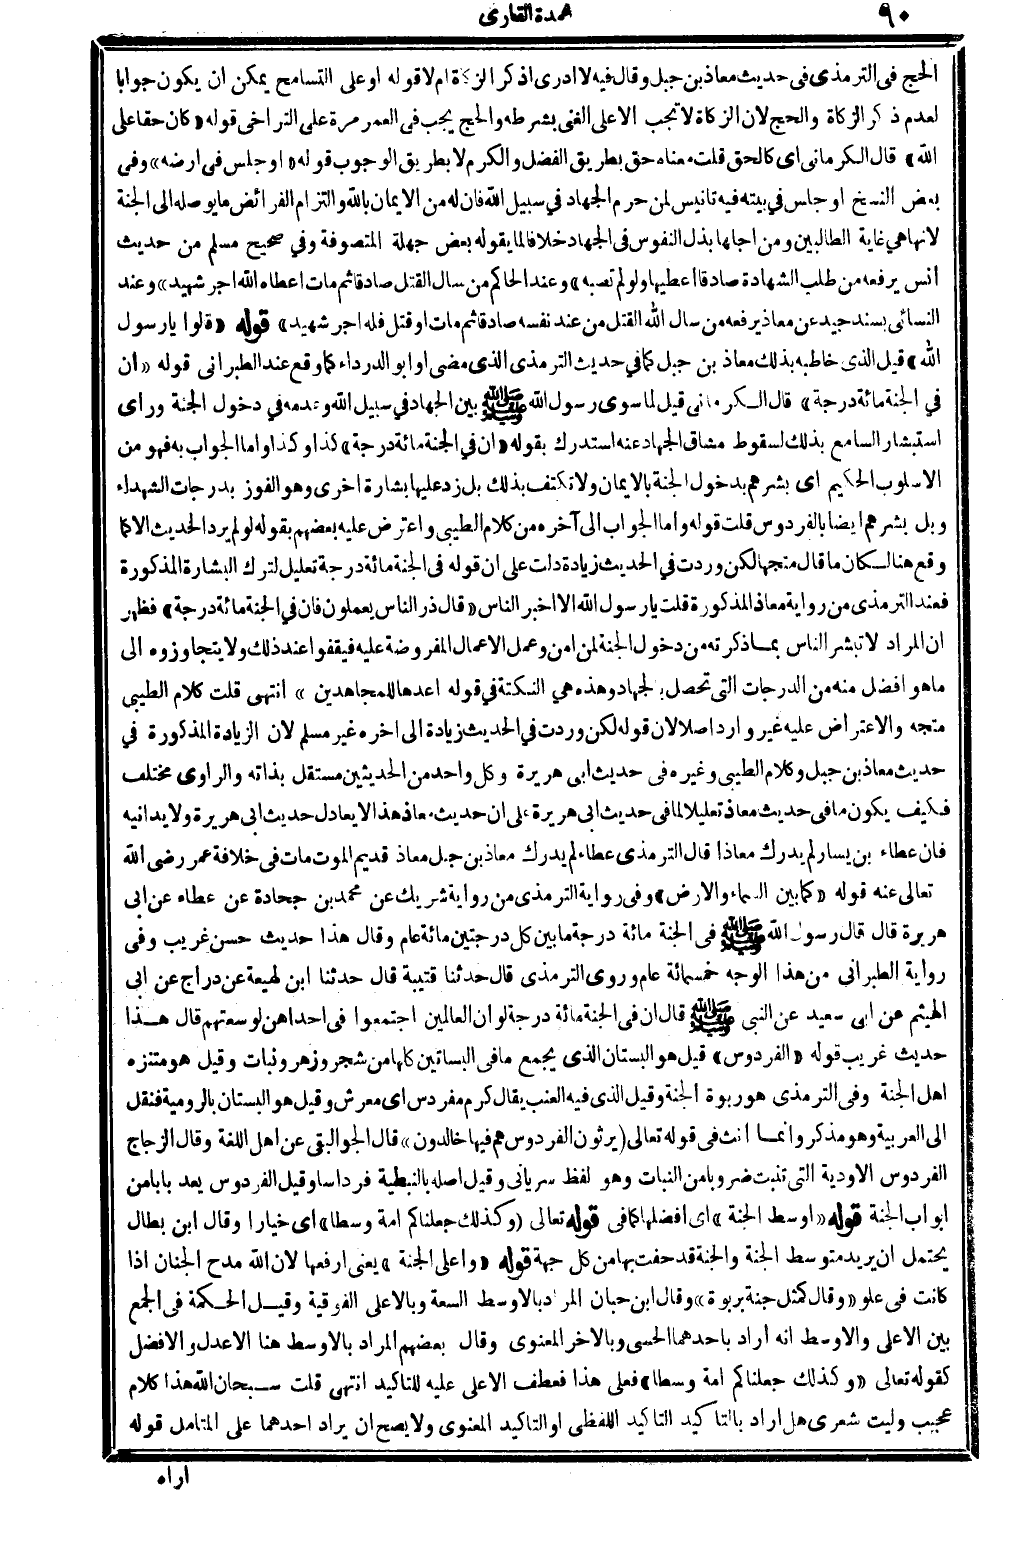 ٩٠
عمدة القارى
الحج فى الترمذى فى حديث معاذ بن جبل وقال فيه لا ادرى اذكر الزكاة ام لا قوله او على التسامح يمكن ان يكون جوابا
لعدم ذكر الزكاة والحج لان الزكاة لا تجب الا على الغنى بشرطه والحج يجب فى العمر مرة على التراخى قوله «كان حقا على
الله» قال الكرمانى اى كالحق قلت معناه حق بطريق الفضل والكرم لا بطريق الوجوب قوله «او جلس فى ارضه» وفى
بعض النسخ او جلس في بيته فيه تانيس لمن حرم الجهاد في سبيل الله فان له من الايمان بالله والتزام الفرائض ما يوصله الى الجنة
لانها هي غاية الطالبين ومن اجلها بذل النفوس فى الجهاد خلافا لما يقوله بعض جهلة المتصوفة وفي صحيح مسلم من حديث
أنس يرفعه من طلب الشهادة صادقا أعطيها ولو لم تصبه» وعند الحاكم من سال القتل صادقا ثم مات اعطاه الله اجر شهيد» وعند
النسائى بسند جيد عن معاذ يرفعه من سال الله القتل من عند نفسه صادقا ثم مات او قتل فله اجر شهيد» قوله «قالوا يا رسول
الله» قيل الذى خاطبه بذلك معاذ بن جبل كما في حديث الترمذى الذى مضى او ابو الدرداء كما وقع عند الطبرانى قوله «ان
في الجنة مائة درجة» قال الكرمانى قيل لما سوى رسول الله ﷺ بين الجهاد في سبيل الله وعدمه في دخول الجنة وراى
استبشار السامع بذلك لسقوط مشاق الجهاد عنه استدرك بقوله «ان في الجنة مائة درجة» كذا وكذا واما الجواب به فهو من
الاسلوب الحكيم اى بشرهم بدخول الجنة بالايمان ولا تكتف بذلك بل زد عليها بشارة اخرى وهو الفوز بدرجات الشهداء
وبل بشرهم ايضا بالفردوس قلت قوله واما الجواب الى آخره من كلام الطيبى واعترض عليه بعضهم بقوله لو لم يرد الحديث الا كما
وقع هنا لكان ما قال متجها لكن وردت في الحديث زيادة دلت على ان قوله فى الجنة مائة درجة تعليل لترك البشارة المذكورة
فعند الترمذى من رواية معاذ المذكورة قلت يا رسول الله الا اخبر الناس «قال ذر الناس يعملون فان في الجنة مائة درجة» فظهر
ان المراد لا تبشر الناس بما ذكرته من دخول الجنة لمن امن وعمل الاعمال المفروضة عليه فيقفوا عند ذلك ولا يتجاوزوه الى
ما هو افضل منه من الدرجات التى تحصل بالجهاد وهذه هي النكتة في قوله اعدها للمجاهدين» انتهى قلت كلام الطيبى
متجه والاعتراض عليه غير وارد اصلا لان قوله لكن وردت في الحديث زيادة الى اخره غير مسلم لان الزيادة المذكورة في
حديث معاذ بن جبل وكلام الطيبى وغيره فى حديث ابى هريرة وكل واحد من الحديثين مستقل بذاته والراوى مختلف
فكيف يكون ما فى حديث معاذ تعليلا لما فى حديث ابى هريرة على ان حديث معاذ هذا لا يعادل حديث ابى هريرة ولا يدانيه
فان عطاء بن يسار لم يدرك معاذا قال الترمذى عطاء لم يدرك معاذ بن جبل معاذ قديم الموت مات فى خلافة عمر رضى الله
تعالى عنه قوله «كما بين السماء والارض» وفى رواية الترمذى من رواية شريك عن محمد بن جحادة عن عطاء عن ابى
هريرة قال قال رسول الله ﷺ فى الجنة مائة درجة ما بين كل درجتين مائة عام وقال هذا حديث حسن غريب وفى
رواية الطبرانى من هذا الوجه خمسمائة عام وروى الترمذى قال حدثنا قتيبة قال حدثنا ابن لهيعة عن دراج عن ابى
الهيثم عن ابى سعيد عن النبى ﷺ قال ان فى الجنة مائة درجة لو ان العالمين اجتمعوا فى احداهن لوسعتهم قال هذا
حديث غريب قوله «الفردوس» قيل هو البستان الذى يجمع ما فى البساتين كلها من شجر وزهر ونبات وقيل هو متنزه
اهل الجنة وفى الترمذى هو ربوة الجنة وقيل الذى فيه العنب يقال كرم مفردس اى معرش وقيل هو البستان بالرومية فنقل
الى العربية وهو مذكر وانما انث فى قوله تعالى (يرثون الفردوس هم فيها خالدون» قال الجوالقى عن اهل اللغة وقال الزجاج
الفردوس الاودية التى تنبت ضروبا من النبات وهو لفظ سريانى وقيل اصله بالنبطية فرداسا وقيل الفردوس يعد بابا من
ابواب الجنة قوله «اوسط الجنة» اى افضلها كما فى قوله تعالى (وكذلك جعلناكم امة وسطا» اى خيارا وقال ابن بطال
يحتمل ان يريد متوسط الجنة والجنة قد حفت بها من كل جهة قوله «واعلى الجنة» يعنى ارفعها لان الله مدح الجنان اذا
كانت فى علو «وقال كمثل جنة بربوة» وقال ابن حبان المراد بالاوسط السعة وبالاعلى الفوقية وقيل الحكمة فى الجمع
بين الاعلى والاوسط انه أراد باحدهما الحسى وبالاخر المعنوى وقال بعضهم المراد بالاوسط هنا الاعدل والافضل
كقوله تعالى «وكذلك جعلناكم امة وسطا» فعلى هذا فعطف الاعلى عليه للتاكيد انتهى قلت سبحان الله هذا كلام
عجيب وليت شعرى هل اراد بالتاكيد التاكيد اللفظى او التاكيد المعنوى ولا يصح ان يراد احدهما على المتامل قوله
اراه